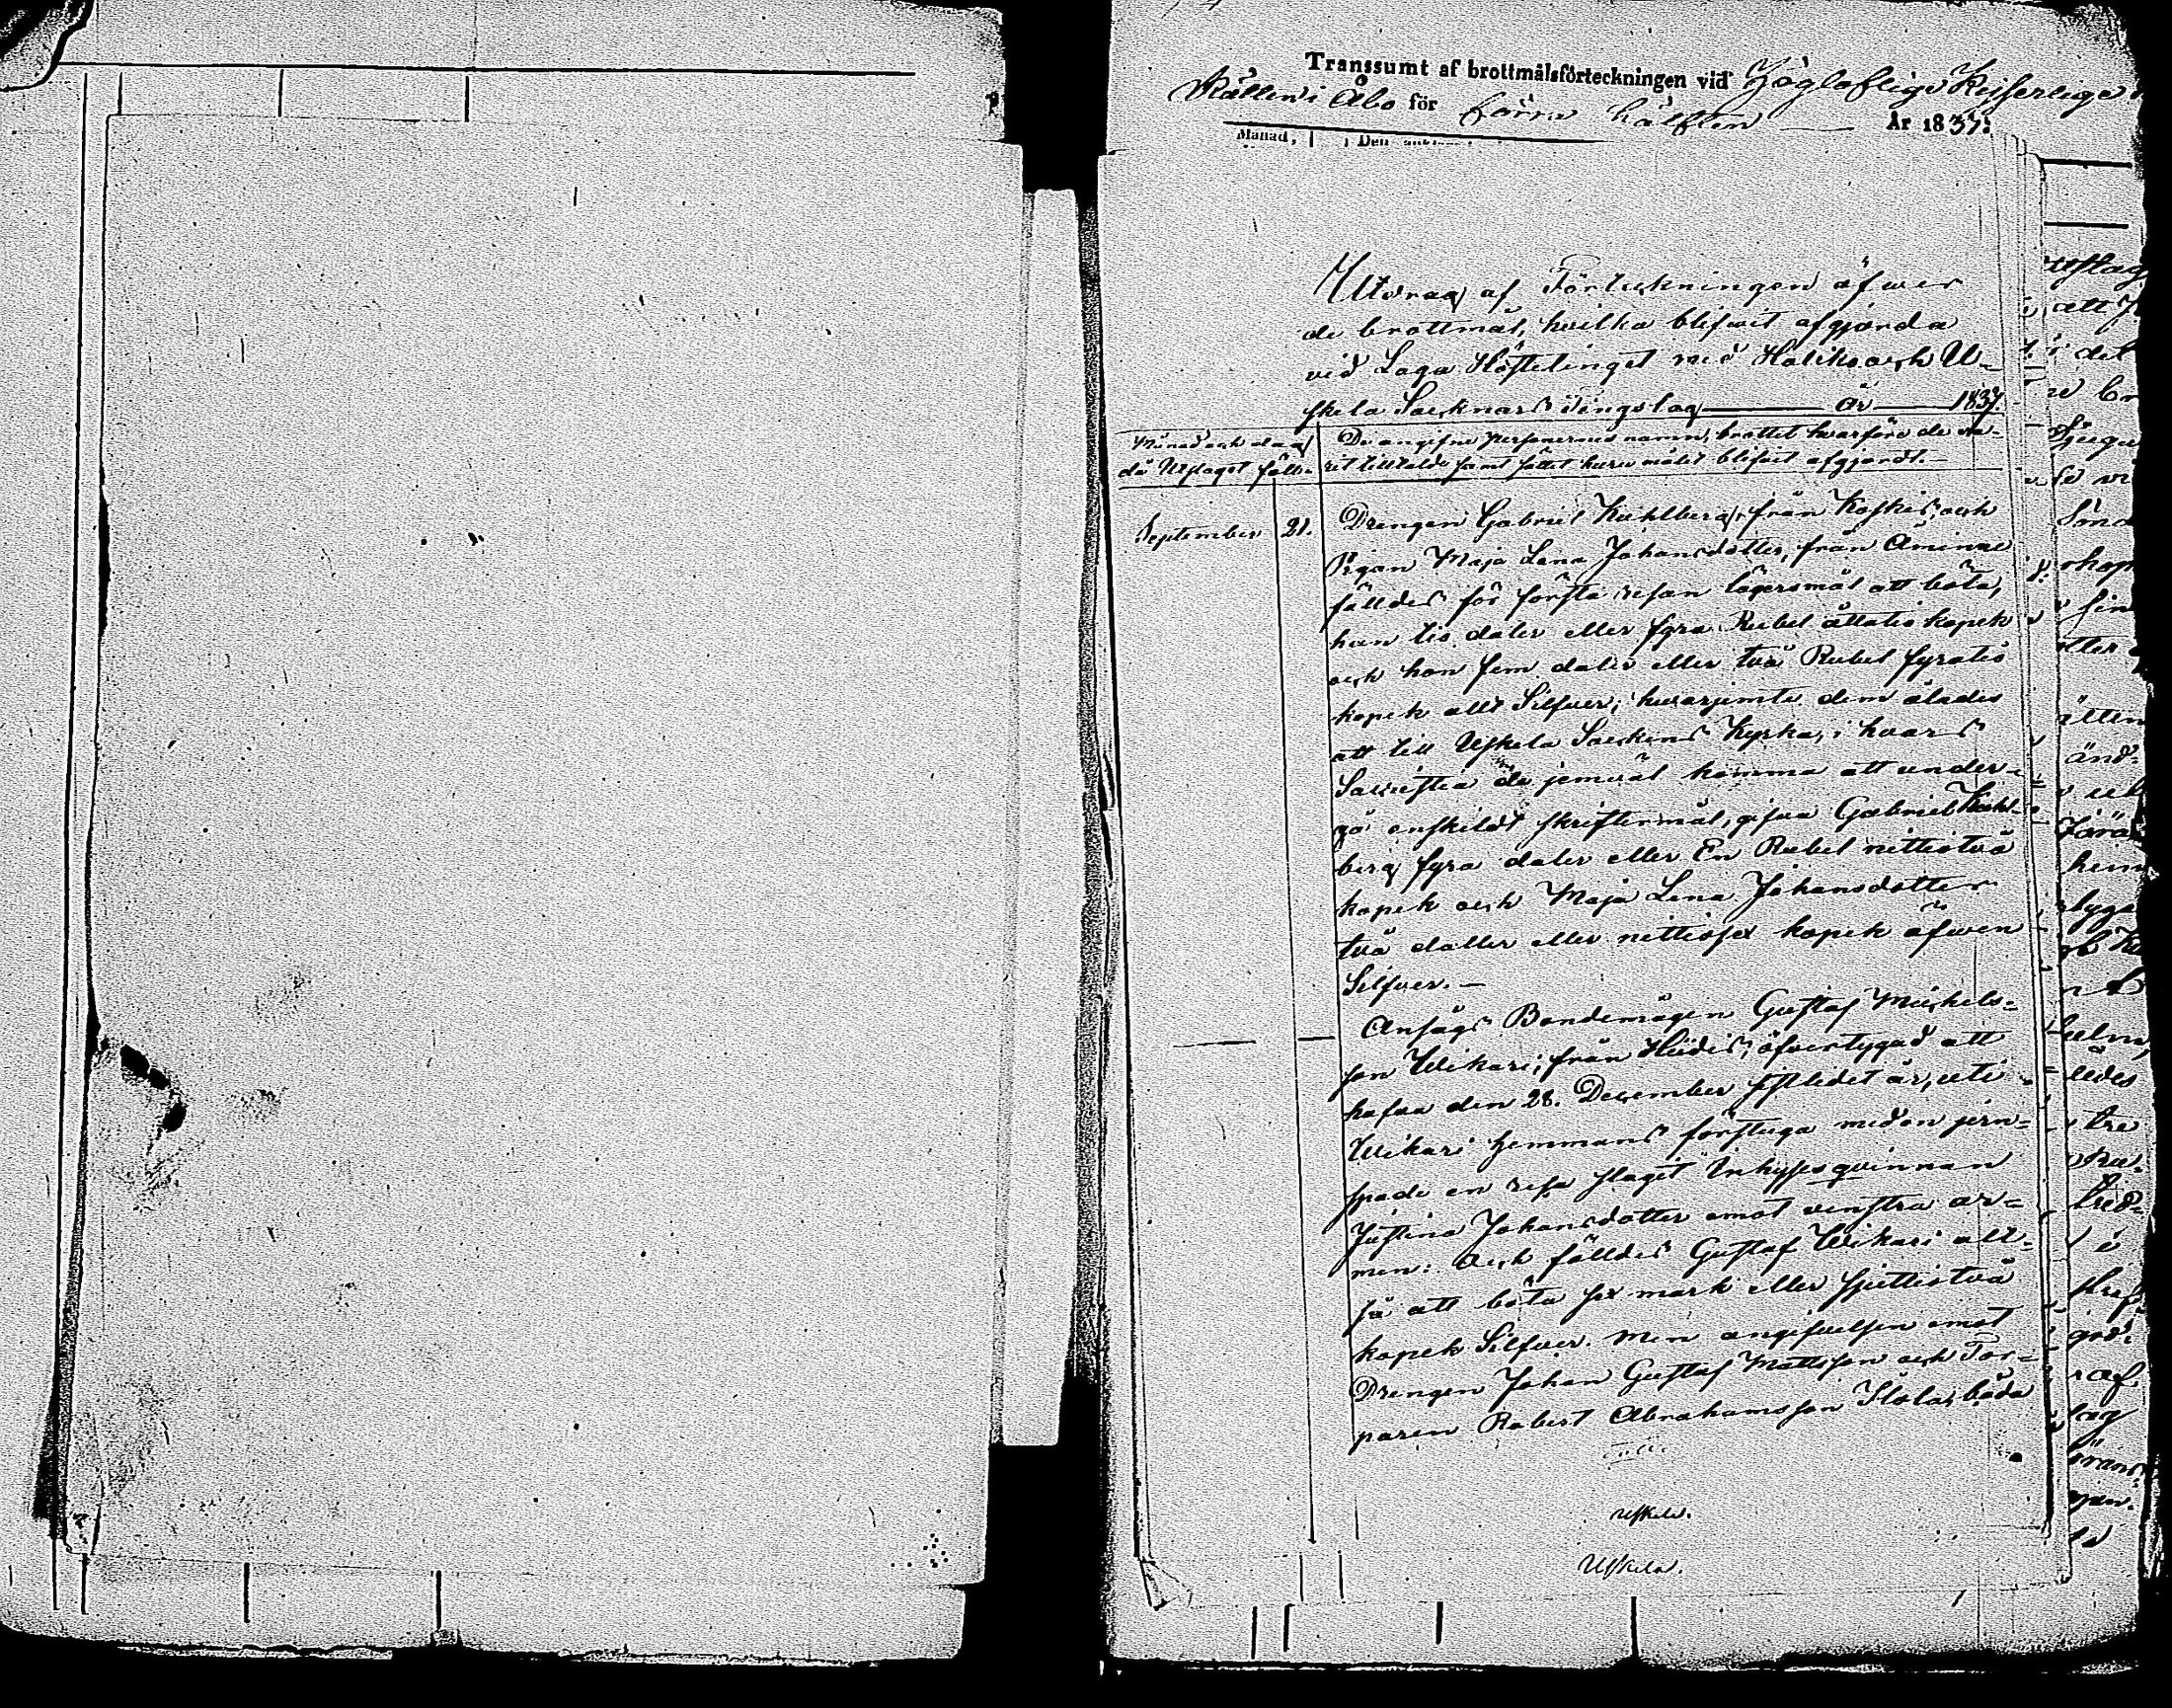 Transsumt af brottmålsförteckningen vid Högloflige Kejserlige
Rätten i Åbo för förra hälften År 1837.
Månad, Den
Utdrag af Förteckningen öfwer
de brottmål, hwilka blifwit afgjorda
vid Laga Höstetinget med Haliko och U-
skela Sacknars Tingslag år 1837.
Månad och dag
då Utslaget fälles
De angifne personernes namn, brottet hwarföre de wa-
rit tilltalde samt sättet huru målet blifwit afgjordt.
September 21.
Drengen Gabriel Kuhlberg, från Koskis, och
Pigan Maja Lena Johansdotter, från Åminne
fälldes för första resan lägersmål att böta,
han tio daler eller fyra Rubel åttatio kopek
och hon fem daler eller två Rubel fyratio
kopek allt Silfwer; hwarjemte dem ålades
att till Uskela Sockens Kyrka, i hwars
Sacristia de jemwäl komma att under-
gå enskildt skriftermål, gifwa Gabriel Kuhl-
berg fyra daler eller En Rubel nittiotvå
kopek och Maja Lena Johansdotter
två daler eller nittiosex kopek äfwen
Silfwer.
Ansågs Bondemågen Gustaf Michels-
son Wikari, från Hidis, öfvertygad att
hafwa den 28. December sistledet år, uti
Wikari hemmans förstuga med en jern-
spade en resa slaget Inhysesqwinnan
Justina Johansdotter emot venstra ar-
men: Och fälldes Gustaf Wikari allt-
så att böta sex mark eller sjuttiotvå
kopek Silfwer. Men angifwelsen emot
Drengen Johan Gustaf Mattsson och Tor-
paren Robert Abrahamsson Ilola, båda
Uskela.
Uskela.